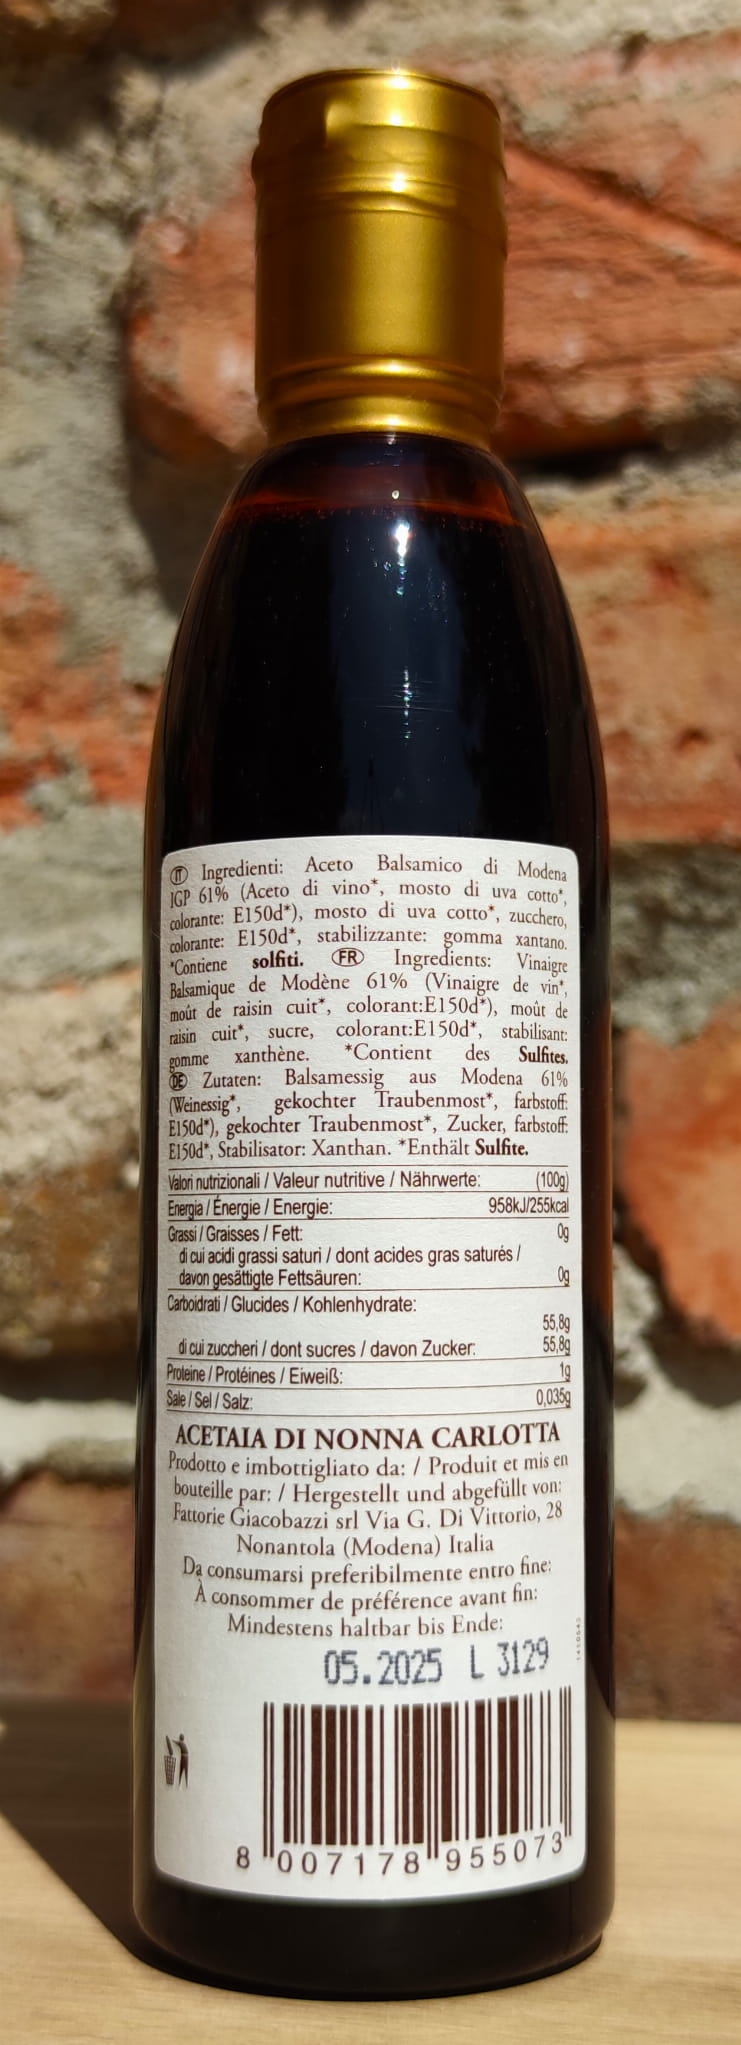 IT Ingredienti: Aceto Balsamico di Modena
IGP 61% (Aceto di vino*, mosto di uva cotto*,
colorante: E150d*), mosto di uva cotto*, zucchero,
colorante: E150d*, stabilizzante: gomma xantano.
*Contiene solfiti. FR Ingredients: Vinaigre
Balsamique de Modène 61% (Vinaigre de vin*,
moût de raisin cuit*, colorant:E150d*), moût de
raisin cuit*, sucre, colorant:E150d*, stabilisant:
gomme xanthène. *Contient des Sulfites.
DE Zutaten: Balsamessig aus Modena 61%
(Weinessig*, gekochter Traubenmost*, farbstoff:
E150d*), gekochter Traubenmost*, Zucker, farbstoff:
E150d*, Stabilisator: Xanthan. *Enthält Sulfite.
Valori nutrizionali / Valeur nutritive / Nährwerte: (100g)
Energia / Énergie / Energie: 958kJ/255kcal
Grassi / Graisses / Fett: 0g
di cui acidi grassi saturi / dont acides gras saturés /
davon gesättigte Fettsäuren: 0g
Carboidrati / Glucides / Kohlenhydrate:
55,8g
di cui zuccheri / dont sucres / davon Zucker: 55,8g
Proteine / Protéines / Eiweiß: 1g
Sale / Sel / Salz: 0,035g
ACETAIA DI NONNA CARLOTTA
Prodotto e imbottigliato da: / Produit et mis en
bouteille par: / Hergestellt und abgefüllt von:
Fattorie Giacobazzi srl Via G. Di Vittorio, 28
Nonantola (Modena) Italia
Da consumarsi preferibilmente entro fine:
À consommer de préférence avant fin:
Mindestens haltbar bis Ende:
05.2025 L 3129
8 007178 955073